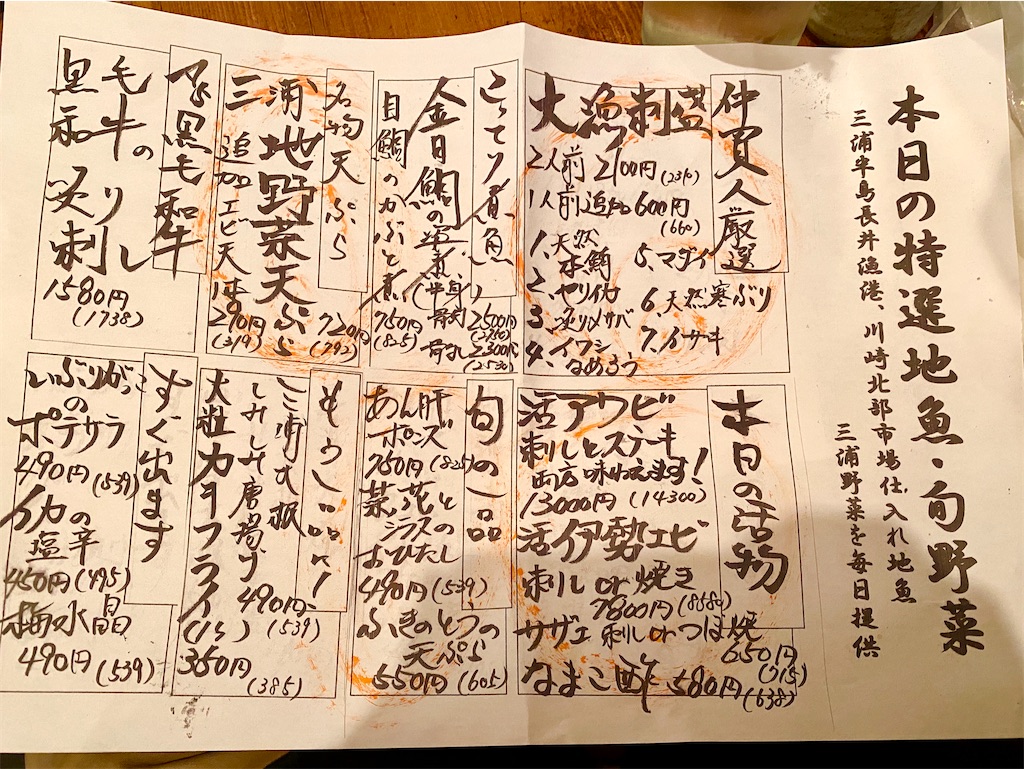 本日の特選地魚・旬野菜
三浦半島長井漁港、川崎北部市場仕入れ地魚
三浦野菜を毎日提供
仲買人厳選
大漁刺盛
2人前 2100円(2310)
1人前追加600円(660)
1、天然本鮪
2、ヤリイカ
3、炙りメサバ
4、イワシなめろう
5、マダイ
6、天然寒ぶり
7、イサキ
こってり煮魚
金目鯛の姿煮(半身)
骨付 2500円(2750)
骨なし 2300円(2530)
目鯛のかぶと煮
750円(825)
名物天ぷら
三浦地野菜天ぷら
720円(792)
追加エビ天1本
290円(319)
マル黒毛和牛
黒毛和牛の炙り刺し
1580円(1738)
本日の活物
活アワビ
刺しとステーキ
両方味わえます!
13000円(14300)
活伊勢エビ
刺し or 焼き
7800円(8580)
サザエ 刺し or つぼ焼
650円(715)
なまこ酢 580円(638)
旬の一品
あん肝ポンズ
750円(825)
菜花とシラスのおひたし
490円(539)
ふきのとうの天ぷら
550円(605)
もう一品!
しみしみ唐揚げ
490円(539)
大粒カキフライ
350円(385)
すぐ出ます
いぶりがっこのポテサラ
490円(539)
イカの塩辛
450円(495)
梅水晶
490円(539)